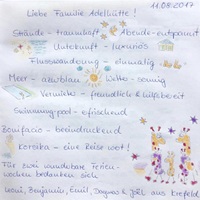 11.08.2017
Liebe Familie Adelhütte!
Strände - traumhaft Abende - entspannt
Unterkunft - luxuriös
Flusswanderung - einmalig
Meer - azurblau Wetter - sonnig
Vermieter - freundlich & hilfsbereit
Swimming-pool - erfrischend
Bonifacio - beeindruckend
Korsika - eine Reise wert!
Für zwei wunderbare Ferien-
wochen bedanken sich
Benjamin, Emil, Dagmar & Joël aus Krefeld